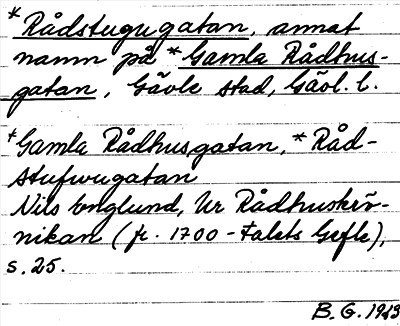 *Rådstugugatan, annat
namn på *Gamla Rådhus-
gatan, Gävle stad, Gävl. l.
*Gamla Rådhusgatan, *Råd-
stufwugatan
Nils Englund, Ur Rådhuskrö-
nikan (fr. 1700-talets Gefle),
s. 25.
B.G. 1943